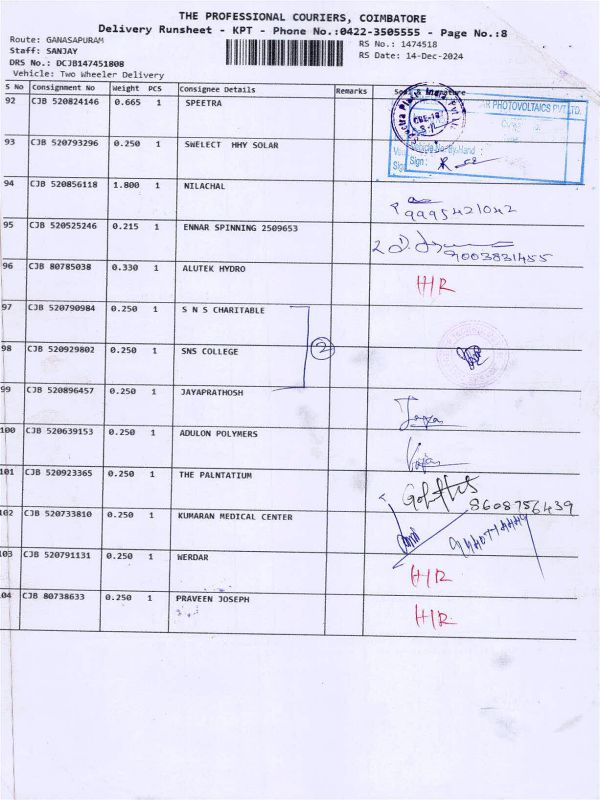 THE PROFESSIONAL COURIERS, COIMBATORE
Delivery Runsheet - KPT - Phone No.:0422-3505555 - Page No.:8
Route: GANASAPURAM
RS No.: 1474518
Staff: SANJAY
RS Date: 14-Dec-2024
DRS No.: DCJB147451808
Vehicle: Two Wheeler Delivery
S No Consignment No Weight PCS Consignee Details Remarks Seal & Signature
92 CJB 520824146 0.665 1 SPEETRA
PHOTOVOLTAICS PVT LTD.
93 CJB 520793296 0.250 1 SWELECT HHY SOLAR
Vehicle No/By Hand :
Sign :
94 CJB 520856118 1.800 1 NILACHAL
9995421042
95 CJB 520525246 0.215 1 ENNAR SPINNING 2509653
9003831455
96 CJB 80785038 0.330 1 ALUTEK HYDRO
HR
97 CJB 520790984 0.250 1 S N S CHARITABLE
2
98 CJB 520929802 0.250 1 SNS COLLEGE
99 CJB 520896457 0.250 1 JAYAPRATHOSH
100 CJB 520639153 0.250 1 ADULON POLYMERS
101 CJB 520923365 0.250 1 THE PALNTATIUM
8608756439
102 CJB 520733810 0.250 1 KUMARAN MEDICAL CENTER
103 CJB 520791131 0.250 1 WERDAR
HR
04 CJB 80738633 0.250 1 PRAVEEN JOSEPH
HR